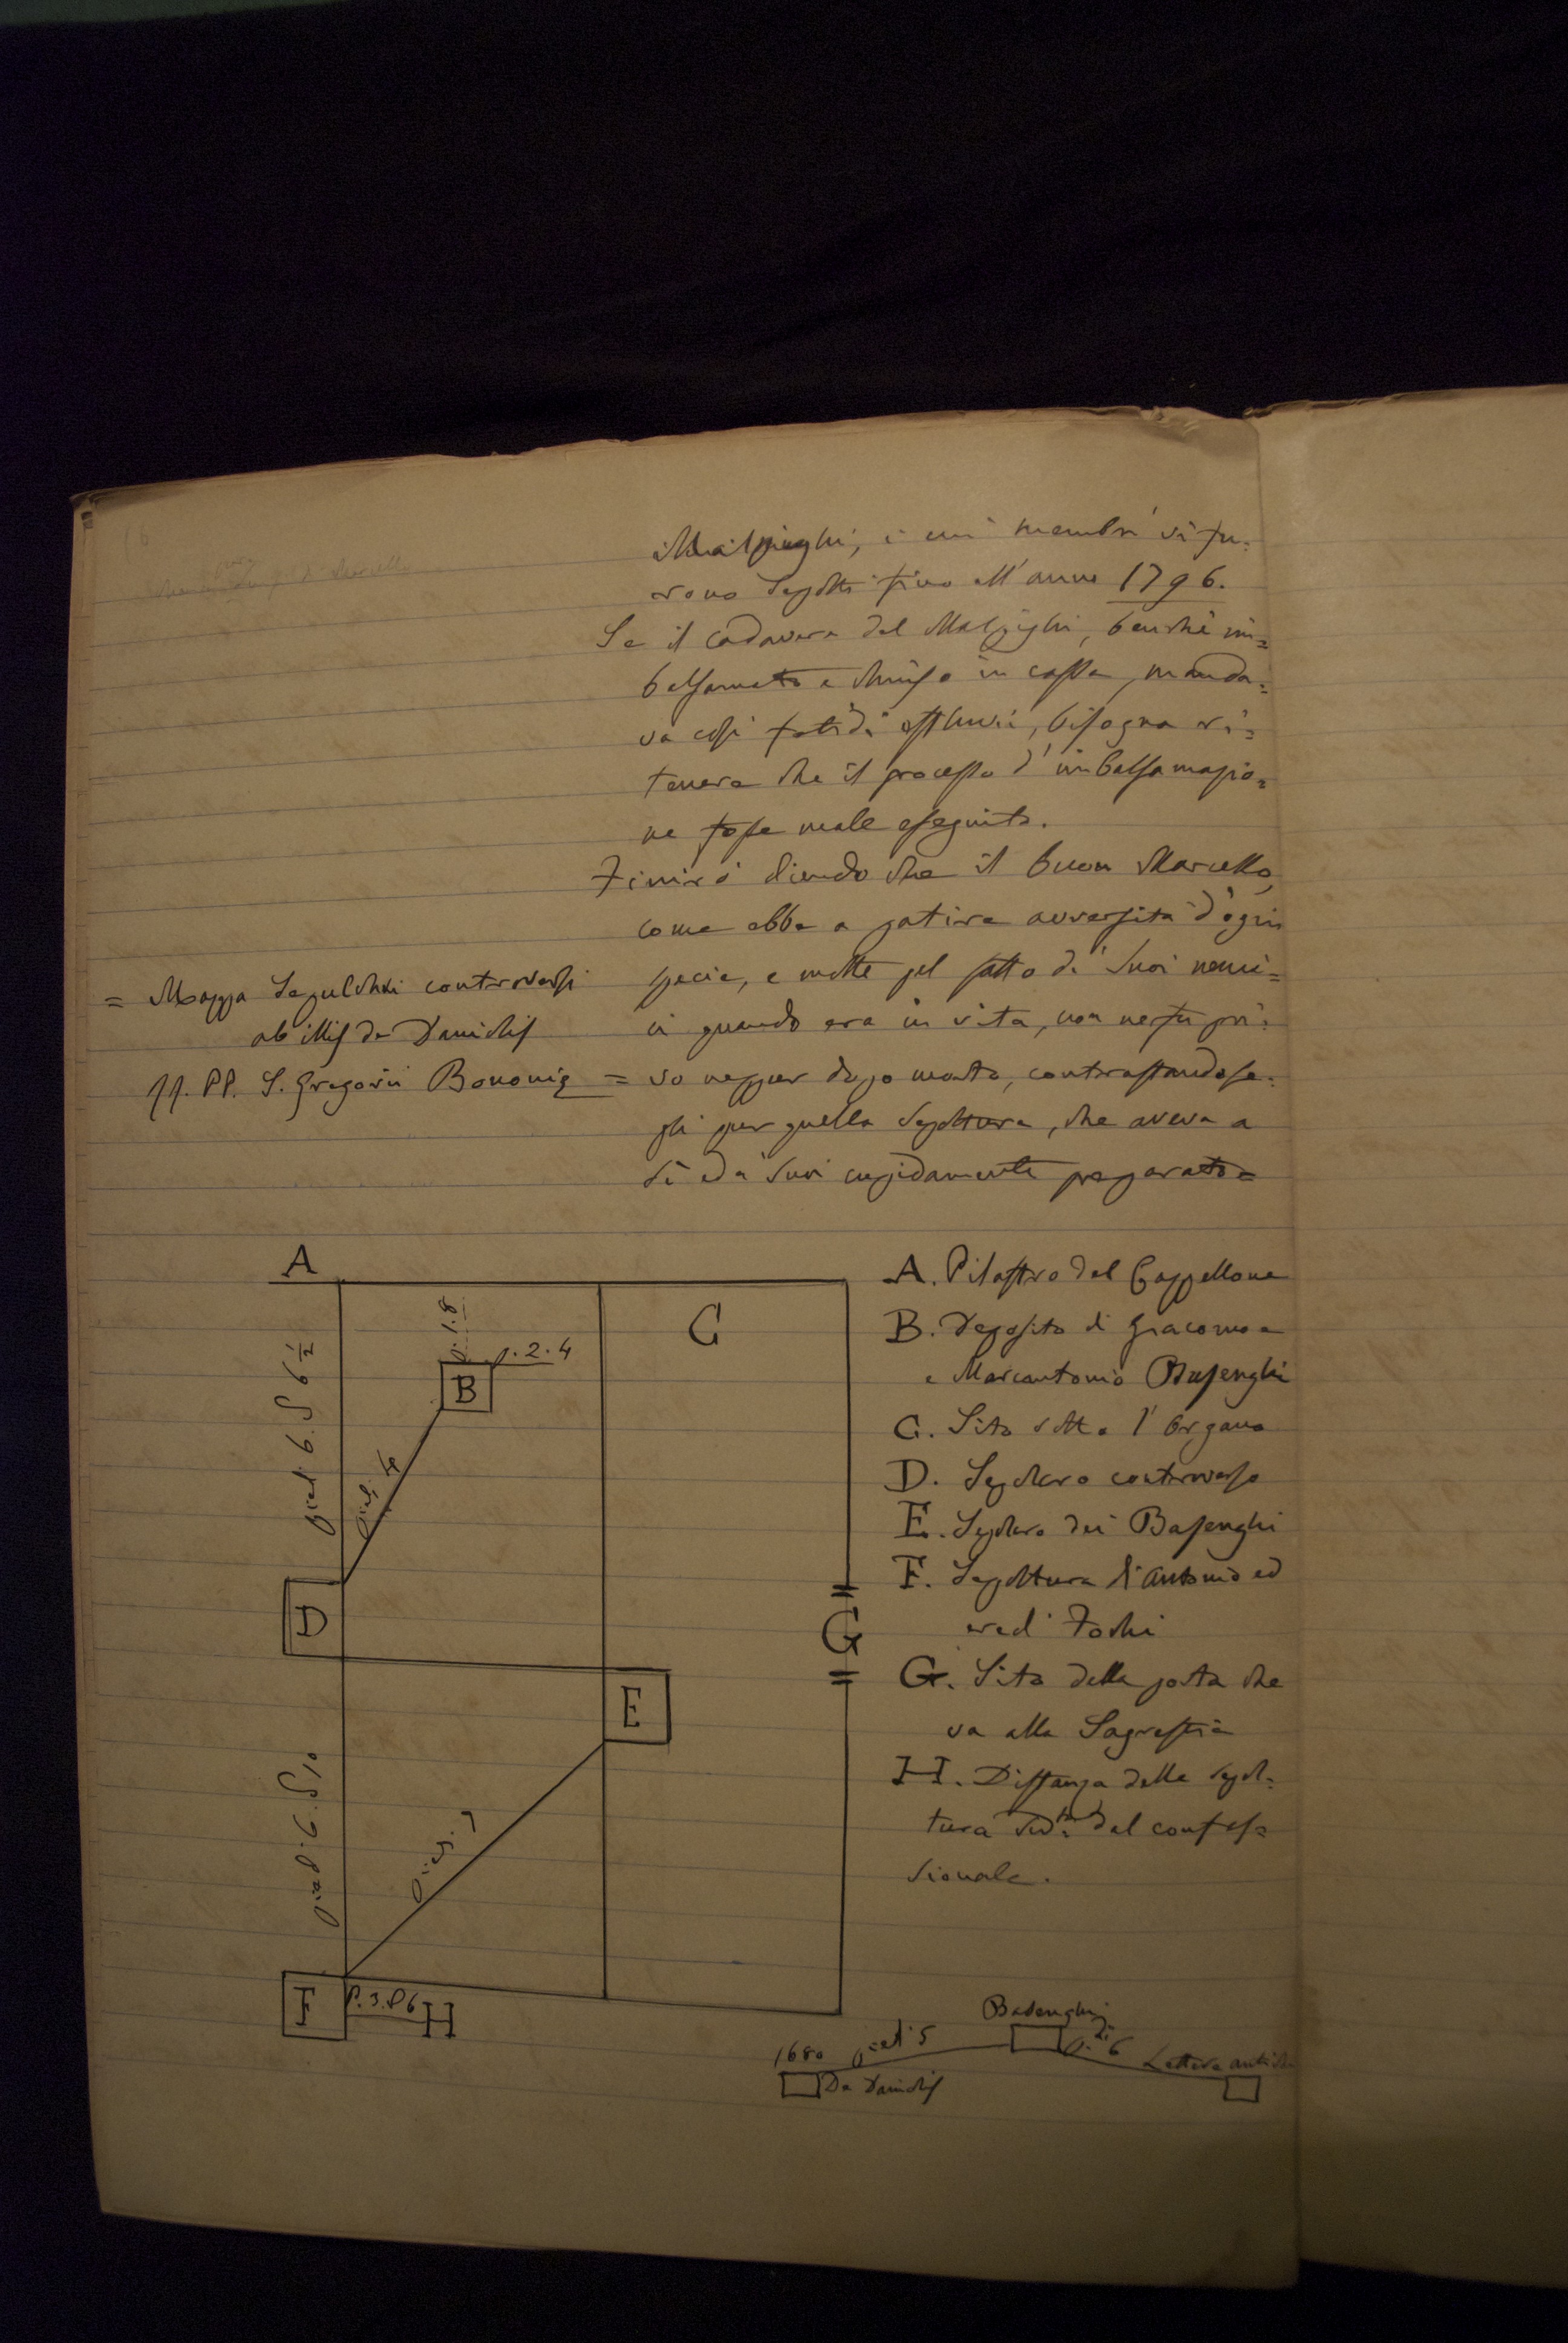 Malpighi, i cui membri vi fu-
rono sepolti fino all'anno 1796.
Se il cadavere del Malpighi, benchè im=
balsamato e chiuso in cassa, manda=
va così fetidi effluvii, bisogna ri=
tenere che il processo d'imbalsamazio=
ne fosse male eseguito.
Finirò dicendo che il buon Marcello,
come ebbe a patire avversità d'ogni
specie, e molte pel fatto di suoi nemi=
ci quando era in vita, non ne fu pri=
vo neppur dopo morto, contrastandose-
gli pur quella sepoltura, che aveva a
sè ed a' suoi cupidamente preparato=
= Mappa Sepulchri controversi
ab illis de Danichis
PP. S. Gregorii Bononię =
A
p. 1.8
p. 2.4
B
C
piedi 6. 6 ½
piedi
D
E
G
piedi 6. 10
piedi 7
F
p. 3.
H
A. Pilastro del Cappellone
B. Deposito di Giacomo e
e Marcantonio Busenghi
C. Sito sotto l'organo
D. Sepolcro controverso
E. Sepolcro dei Basenghi
F. Sepoltura d'Antonio ed
eredi Foschi
G. Sito della porta che
va alla Sagrestia
H. Distanza della sepol=
tura sudᵗᵃ dal confes=
sionale.
Basenghi
1680 piedi 5
p.di 6
Lettere antiche
De Danichis